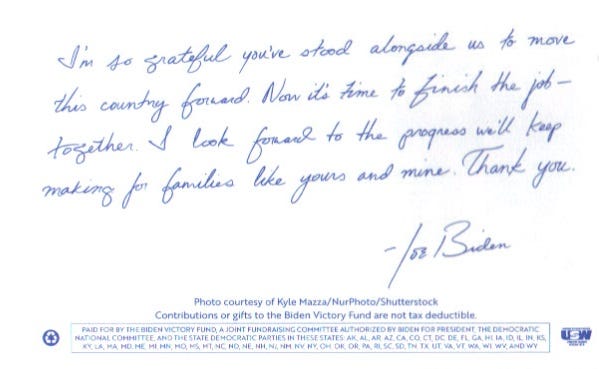 I'm so grateful you've stood alongside us to move
this country forward. Now it's time to finish the job—
together. I look forward to the progress we'll keep
making for families like yours and mine. Thank you.
—Joe Biden
Photo courtesy of Kyle Mazza/NurPhoto/Shutterstock
Contributions or gifts to the Biden Victory Fund are not tax deductible.
PAID FOR BY THE BIDEN VICTORY FUND, A JOINT FUNDRAISING COMMITTEE AUTHORIZED BY BIDEN FOR PRESIDENT, THE DEMOCRATIC
NATIONAL COMMITTEE, AND THE STATE DEMOCRATIC PARTIES IN THESE STATES: AK, AL, AR, AZ, CA, CO, CT, DC, DE, FL, GA, HI, IA, ID, IL, IN, KS,
KY, LA, MA, MD, ME, MI, MN, MO, MS, MT, NC, ND, NE, NH, NJ, NM, NV, NY, OH, OK, OR, PA, RI, SC, SD, TN, TX, UT, VA, VT, WA, WI, WV, AND WY
USW